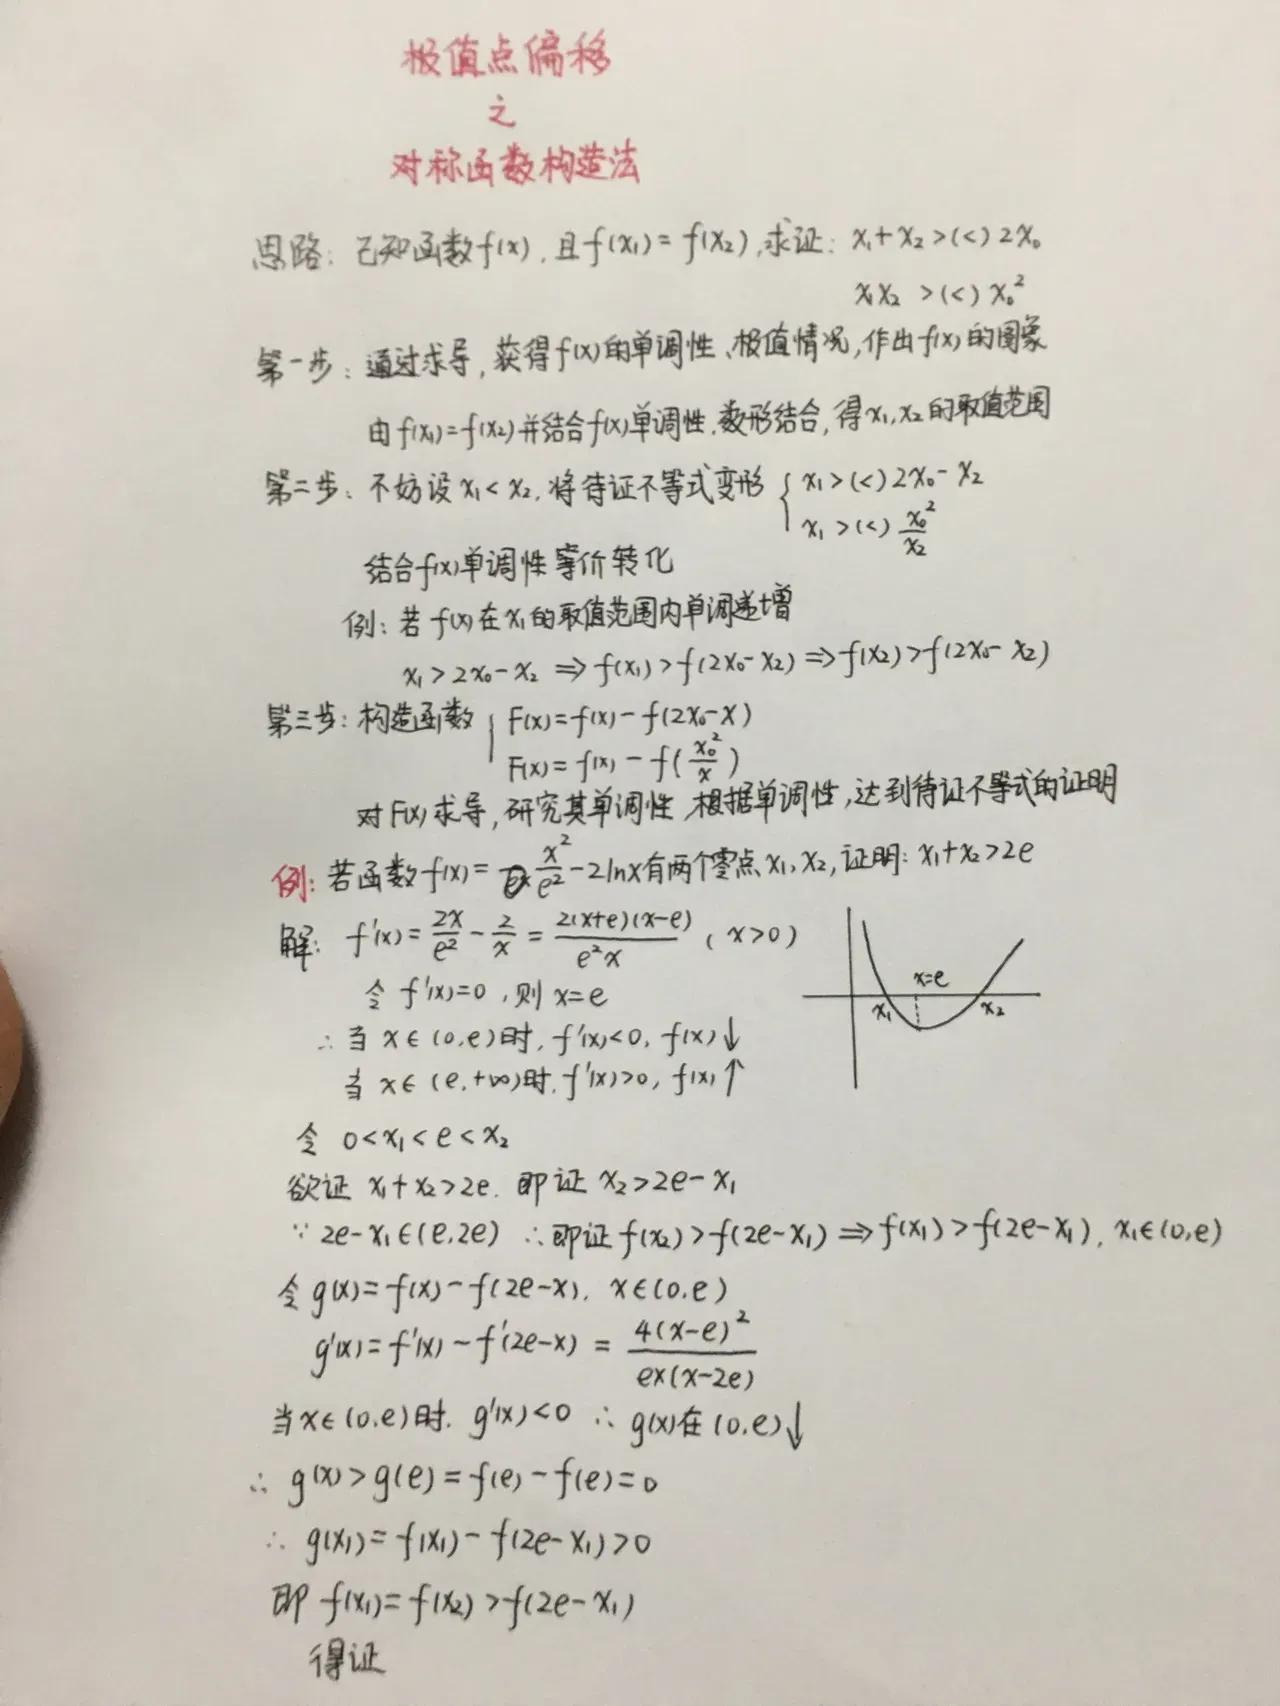 极值点偏移
之
对称函数构造法
思路: 已知函数f(x),且f(x₁)=f(x₂),求证: x₁+x₂>(<)2x₀
x₁x₂ >(<) x₀²
第一步: 通过求导,获得f(x)的单调性、极值情况,作出f(x)的图象
由f(x₁)=f(x₂)并结合f(x)单调性,数形结合,得x₁,x₂的取值范围
第二步: 不妨设x₁<x₂,将待证不等式变形 { x₁>(<)2x₀-x₂
x₁>(<) x₀²/x₂
结合f(x)单调性等价转化
例: 若f(x)在x₁的取值范围内单调递增
x₁>2x₀-x₂ ⇒ f(x₁)>f(2x₀-x₂) ⇒ f(x₂)>f(2x₀-x₂)
第三步: 构造函数 { F(x)=f(x)-f(2x₀-x)
F(x)=f(x)-f(x₀²/x)
对F(x)求导,研究其单调性,根据单调性,达到待证不等式的证明
例: 若函数f(x)= x²/e²-2lnx有两个零点x₁,x₂,证明: x₁+x₂>2e
解: f'(x)=2x/e²-2/x=2(x+e)(x-e)/e²x (x>0)
令f'(x)=0,则x=e
∴当x∈(0,e)时,f'(x)<0,f(x)↓
当x∈(e,+∞)时,f'(x)>0,f(x)↑
x=e
x₁ x₂
令 0<x₁<e<x₂
欲证 x₁+x₂>2e, 即证 x₂>2e-x₁
∵ 2e-x₁∈(e,2e) ∴即证f(x₂)>f(2e-x₁)⇒f(x₁)>f(2e-x₁), x₁∈(0,e)
令g(x)=f(x)-f(2e-x), x∈(0,e)
g'(x)=f'(x)-f'(2e-x)=4(x-e)²/ex(x-2e)
当x∈(0,e)时, g'(x)<0 ∴ g(x)在(0,e)↓
∴ g(x)>g(e)=f(e)-f(e)=0
∴ g(x₁)=f(x₁)-f(2e-x₁)>0
即 f(x₁)=f(x₂)>f(2e-x₁)
得证